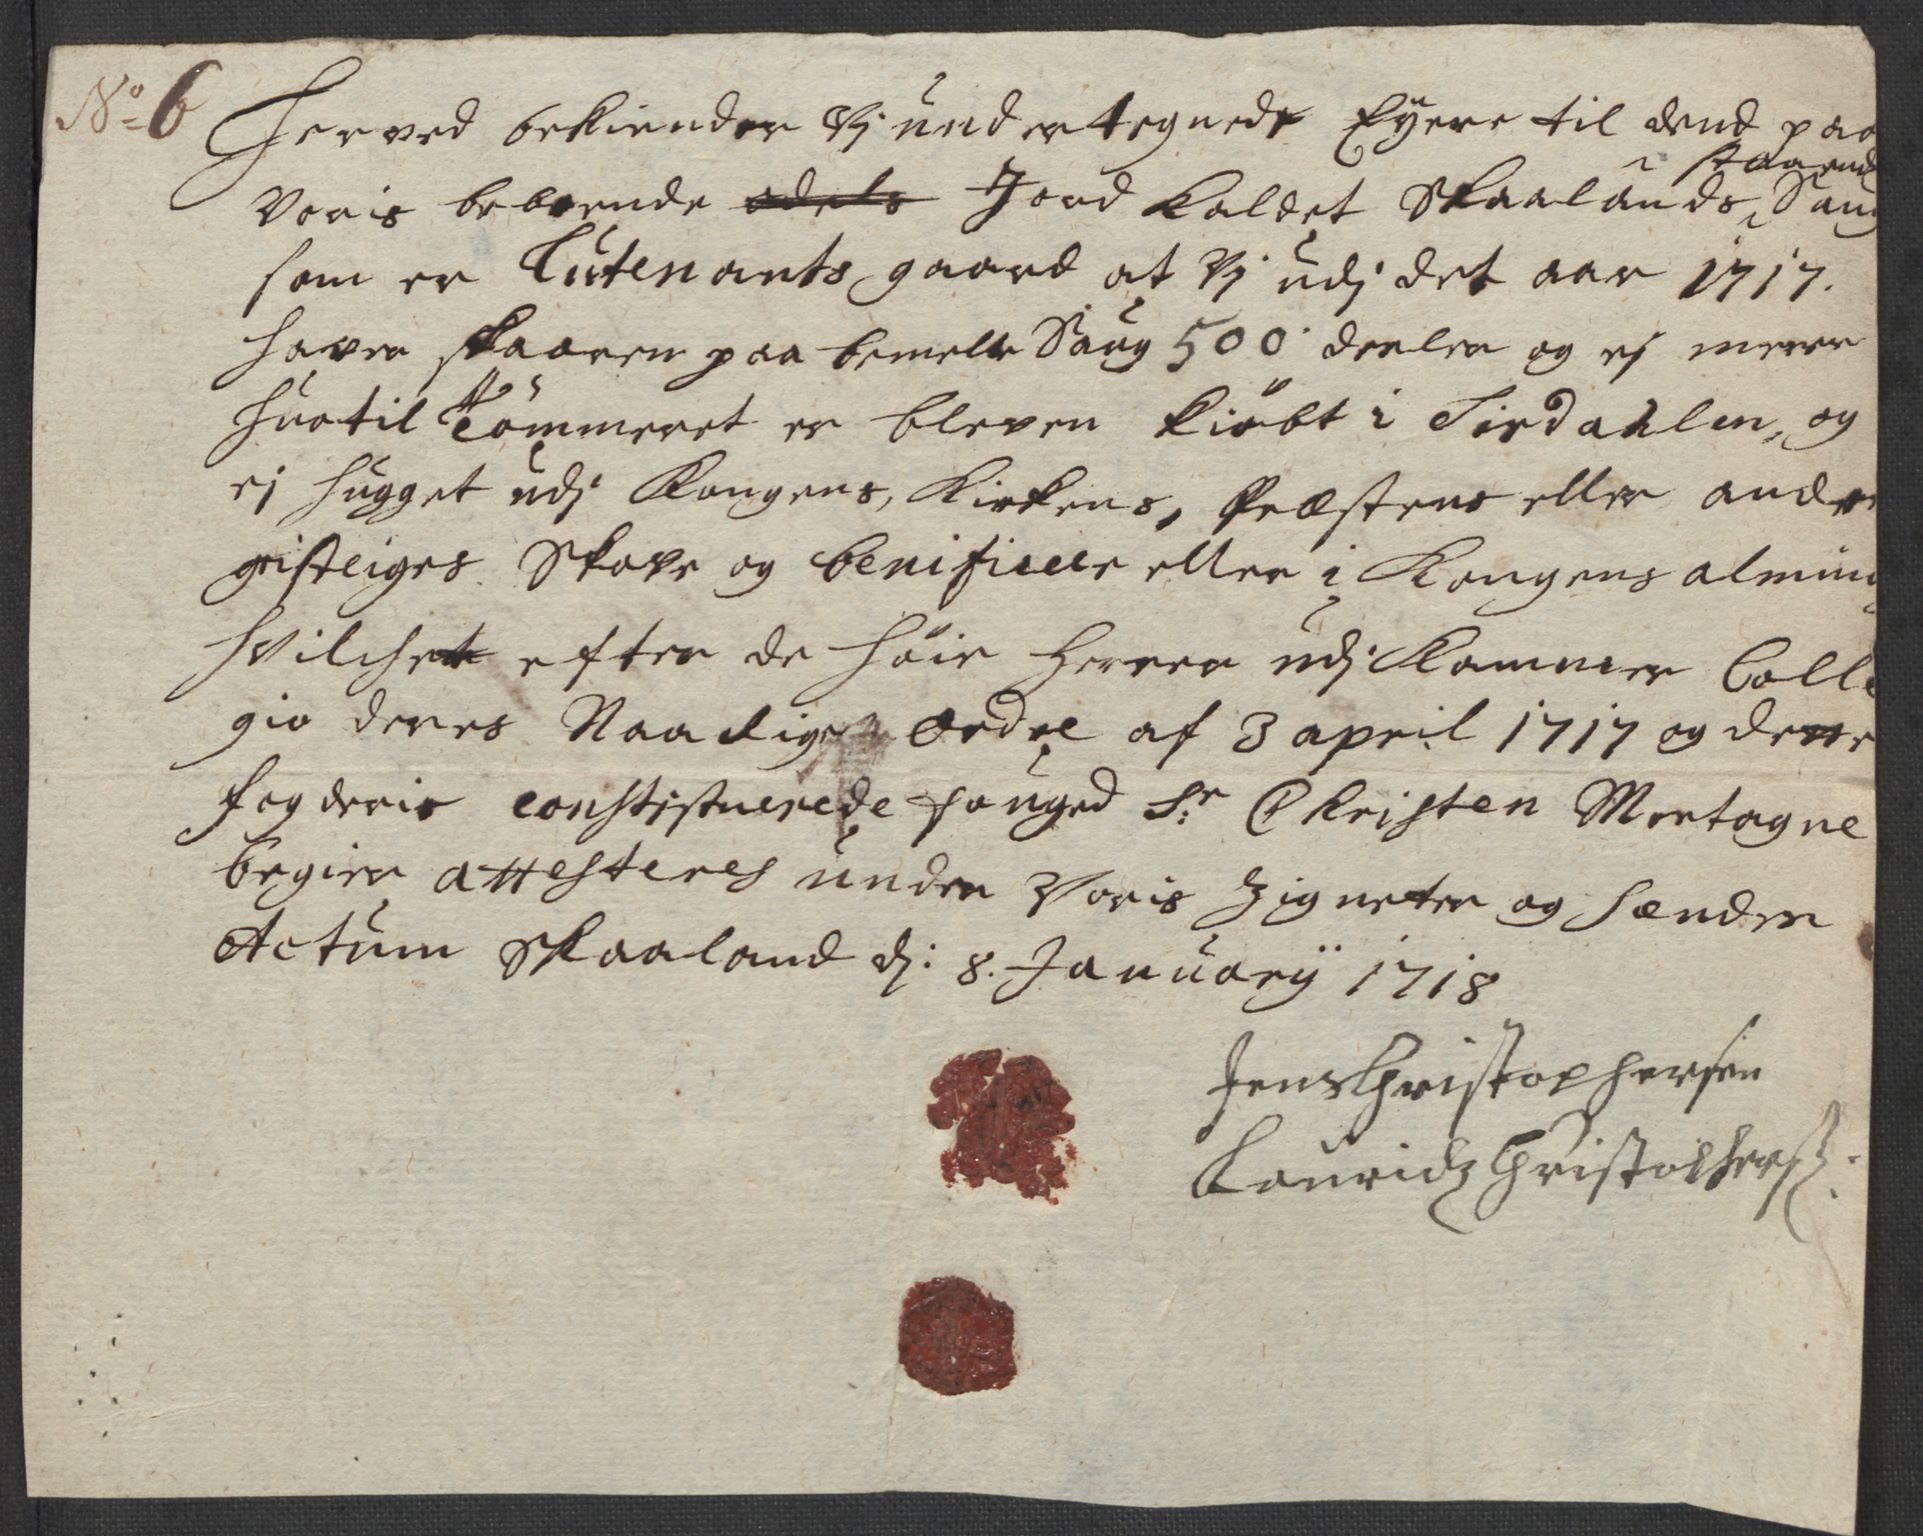 No 6
Herved bekiender Vj undertegnede Eÿere til dend paa
Voris beboende odels Jord Kaldet Skaalands staaende Saug
som er Lutenants gaard at Vj udj det aar 1717.
haver skaaren paa bemelte Saug 500 deeler og ej meere
hvortil Tømmeret er bleven kiøbt i Sirdahlen, og
ej hugget udj Kongens, Kirkens, Præstens eller andre
gistliges Skove og benificeer eller i Kongens alming
hvilchet efter de høie Herrer udj Kammer Colle
gio deres Naadige ordre af 3 april 1717 og dette
fogderis constistuerede fouged Sr Christen Mortagne
begier attesteres under Voris Zigneter og hænder
Actum Skaaland dj: 8. Januarÿ 1718
Jens Christophersen
Lauridz Christophers: